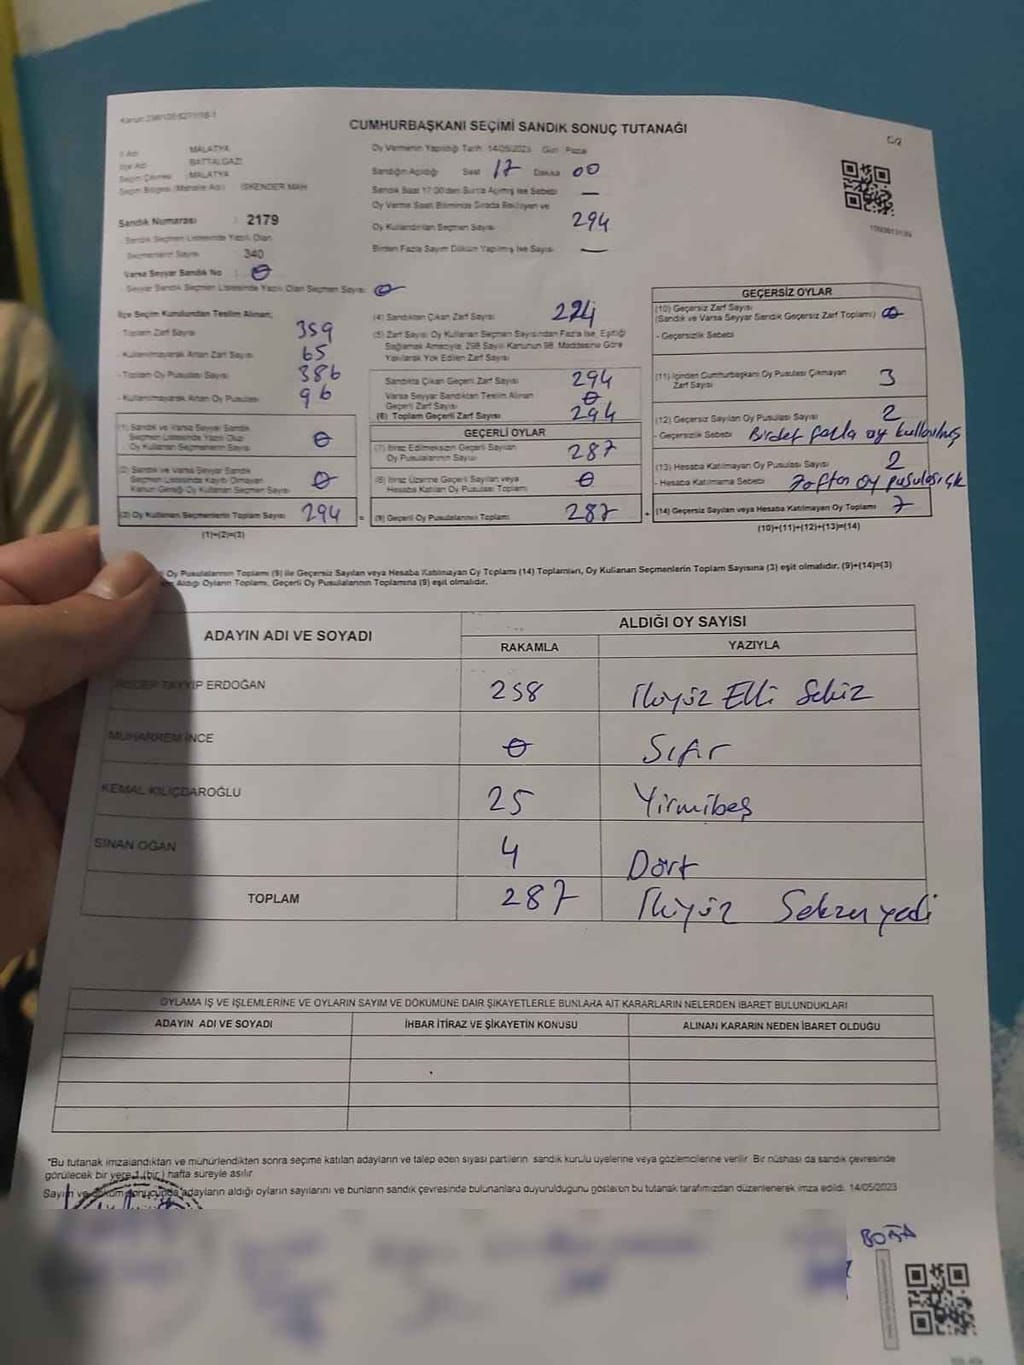 CUMHURBAŞKANI SEÇİMİ SANDIK SONUÇ TUTANAĞI
İl Adı MALATYA
İlçe Adı BATTALGAZİ
Seçim Çevresi MALATYA
Seçim Bölgesi (Mahalle Adı) İSKENDER MAH
Sandık Numarası : 2179
Sandık Seçmen Listesinde Yazılı Olan
Seçmenlerin Sayısı 340
Varsa Seyyar Sandık No : 0
Seyyar Sandık Seçmen Listesinde Yazılı Olan Seçmen Sayısı: 0
Oy Vermenin Yapıldığı Tarih: 14/05/2023 Gün: Pazar
Sandığın Açıldığı Saat 17 Dakika 00
Sandık Saat 17:00'den Sonra Açılmış İse Sebebi —
Oy Verme Saati Bitiminde Sırada Bekleyen ve
Oy Kullandırılan Seçmen Sayısı 294
Birden Fazla Sayım Döküm Yapılmış İse Sayısı: —
İlçe Seçim Kurulundan Teslim Alınan;
- Toplam Zarf Sayısı 359
- Kullanılmayarak Artan Zarf Sayısı 65
- Toplam Oy Pusulası Sayısı 386
- Kullanılmayarak Artan Oy Pusulası 96
(1) Sandık ve Varsa Seyyar Sandık
Seçmen Listesinde Yazılı Olup
Oy Kullanan Seçmenlerin Sayısı 0
(2) Sandık ve Varsa Seyyar Sandık
Seçmen Listesinde Kayıtlı Olmayan
Kanun Gereği Oy Kullanan Seçmen Sayısı 0
(3) Oy Kullanan Seçmenlerin Toplam Sayısı 294
(1)+(2)=(3)
(4) Sandıktan Çıkan Zarf Sayısı
(5) Zarf Sayısı Oy Kullanan Seçmen Sayısından Fazla İse, Eşitliği
Sağlamak Amacıyla, 298 Sayılı Kanunun 98. Maddesine Göre
Yakılarak Yok Edilen Zarf Sayısı
Sandıkta Çıkan Geçerli Zarf Sayısı 294
Varsa Seyyar Sandıktan Teslim Alınan
Geçerli Zarf Sayısı 0
(6) Toplam Geçerli Zarf Sayısı 294
GEÇERLİ OYLAR
(7) İtiraz Edilmeksizin Geçerli Sayılan
Oy Pusulalarının Sayısı 287
(8) İtiraz Üzerine Geçerli Sayılan veya
Hesaba Katılan Oy Pusulası Toplamı 0
= (9) Geçerli Oy Pusulalarının Toplamı 287
GEÇERSİZ OYLAR
(10) Geçersiz Zarf Sayısı
(Sandık ve Varsa Seyyar Sandık Geçersiz Zarf Toplamı) 0
- Geçersizlik Sebebi
(11) İçinden Cumhurbaşkanı Oy Pusulası Çıkmayan
Zarf Sayısı 3
(12) Geçersiz Sayılan Oy Pusulası Sayısı 2
- Geçersizlik Sebebi Birden fazla oy kullanılmış
(13) Hesaba Katılmayan Oy Pusulası Sayısı 2
- Hesaba Katılmama Sebebi Zaften oy pusulası çık
+ (14) Geçersiz Sayılan veya Hesaba Katılmayan Oy Toplamı 7
(10)+(11)+(12)+(13)=(14)
Oy Pusulalarının Toplamı (9) ile Geçersiz Sayılan veya Hesaba Katılmayan Oy Toplamı (14) Toplamları, Oy Kullanan Seçmenlerin Toplam Sayısına (3) eşit olmalıdır. (9)+(14)=(3)
Aldığı Oyların Toplamı, Geçerli Oy Pusulalarının Toplamına (9) eşit olmalıdır.
ADAYIN ADI VE SOYADI
ALDIĞI OY SAYISI
RAKAMLA YAZIYLA
RECEP TAYYİP ERDOĞAN 258 İkiyüz Elli Sekiz
MUHARREM İNCE 0 Sıfır
KEMAL KILIÇDAROĞLU 25 Yirmibeş
SİNAN OĞAN 4 Dört
TOPLAM 287 İkiyüz Seksenyedi
OYLAMA İŞ VE İŞLEMLERİNE VE OYLARIN SAYIM VE DÖKÜMÜNE DAİR ŞİKAYETLERLE BUNLARA AİT KARARLARIN NELERDEN İBARET BULUNDUKLARI
ADAYIN ADI VE SOYADI İHBAR İTİRAZ VE ŞİKAYETİN KONUSU ALINAN KARARIN NEDEN İBARET OLDUĞU
*Bu tutanak imzalandıktan ve mühürlendikten sonra seçime katılan adayların ve talep eden siyasi partilerin sandık kurulu üyelerine veya gözlemcilerine verilir. Bir nüshası da sandık çevresinde
görülecek bir yere 1 (bir) hafta süreyle asılır.
Sayım ve döküm sonucunda adayların aldığı oyların sayılarını ve bunların sandık çevresinde bulunanlara duyurulduğunu gösteren bu tutanak tarafımızdan düzenlenerek imza edildi. 14/05/2023